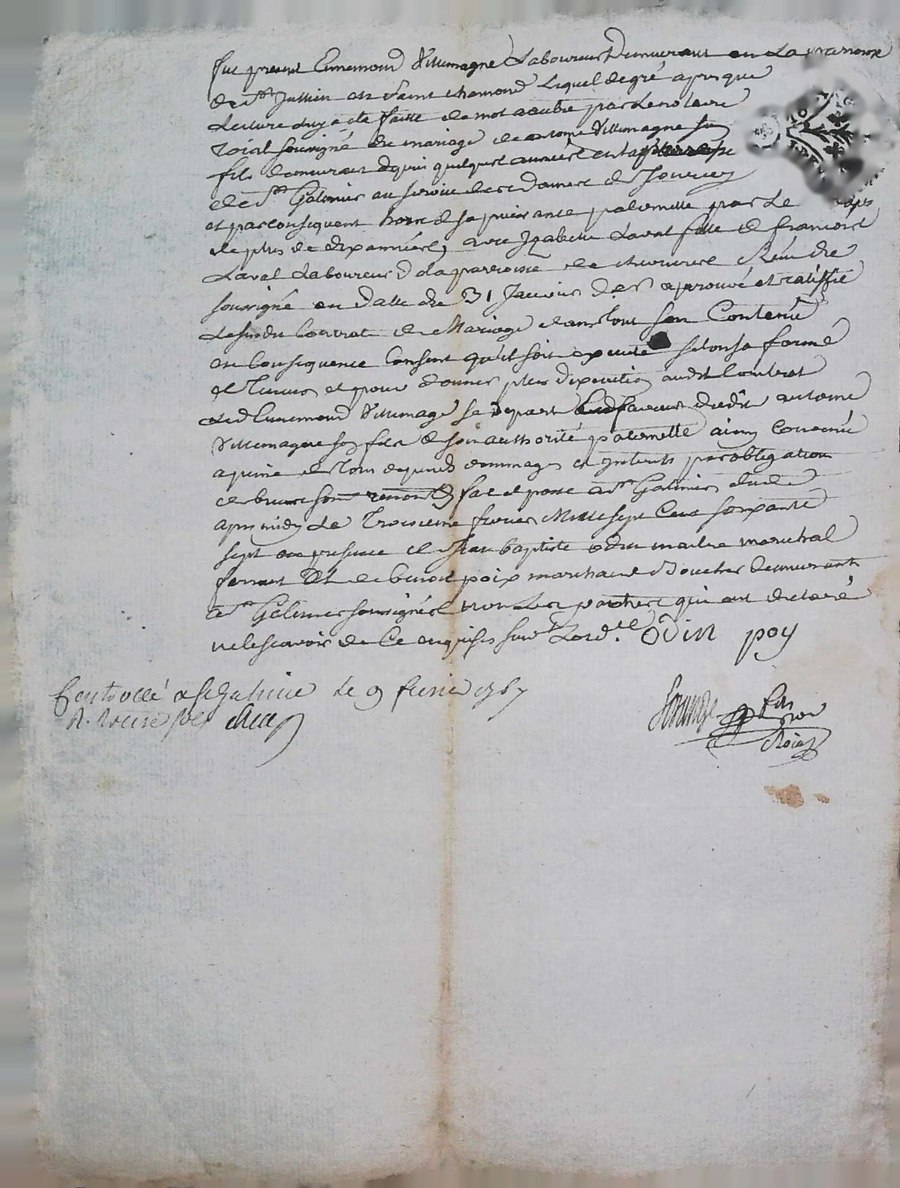 fut present Ennemond Villemagne Laboureur Demeurant en La parroisse
de St Jullien en Saint chamond Lequel de gré apres que
Lecture luy a ete faitte de mot a autre par Le notaire
roial soussigné du mariage de antoine Villemagne son
fils demeurant depuis quelques années en la parroisse
de St Galmier au service des dames de
et par consequent hors de sa puissance paternelle par Le laps
de plus de dix années, avec Izabeau Laval fille de francois
Laval Laboureur de La parroisse de
soussigné en datte du 31 Janvier der aprouvé et ratiffié
Lesusdit Contrat de Mariage dans tout son Contenu
en Consequence Consent qu'il soit executé selon sa forme
et Teneur et pour donner plus d'execution audit Contrat
Led Ennemond Villemagne se depart en faveur dudit antoine
Villemagne son fils de son authorité paternelle ainsy Convenu
a peine de tous depends dommages et interets par obligation
de biens soum renon fait et passé a St Galmier etude
apres midy Le Troisieme fevrier Mille sept Cent soixante
sept en presence de Jean baptiste odin maitre marechal
ferrant Et de benoit poix marchand Boucher demeurants
a St Galmier soussignés non Les parties qui ont declaré
ne le scavoir de Ce enquises sur Lord.ce Odin poy
Controllé a St Galmier le 9 fevrier 1767
R. treize sols
roial